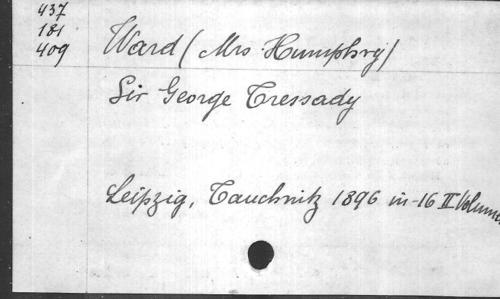 437
181
409
Ward (Mrs Humphry)
Sir George Tressady
Leipzig, Tauchnitz 1896 in-16 II Volumes